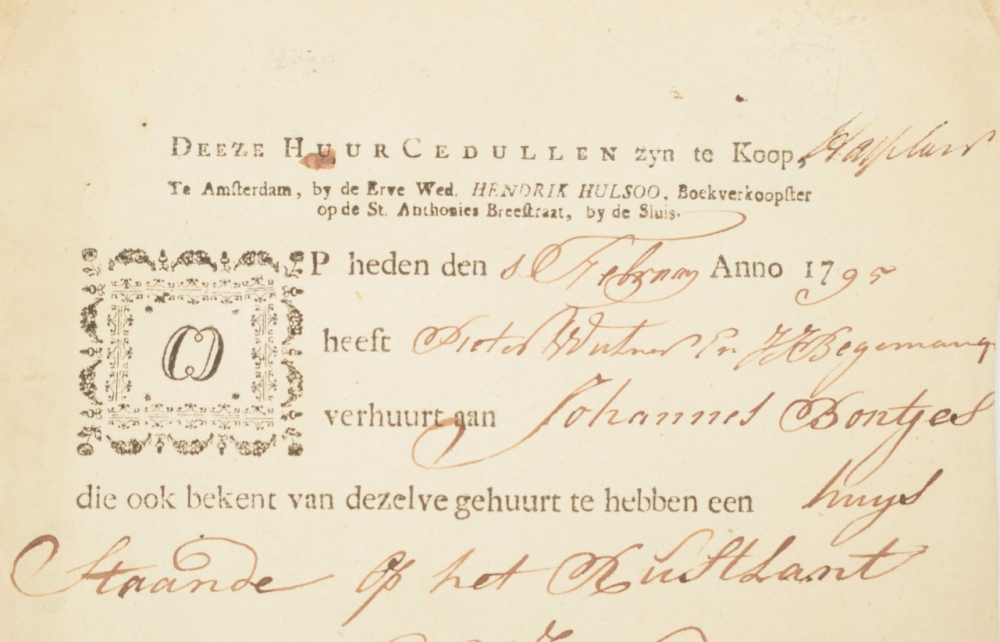 DEEZE HUUR CEDULLEN zyn te Koop,
Te Amsterdam, by de Erve Wed. HENDRIK HULSOO, Boekverkoopster
op de St. Anthonies Breestraat, by de Sluis.
OP heden den 8 Februay Anno 1795
heeft Pieter En J H Begemang
verhuurt aan Johannes Bontjes
die ook bekent van dezelve gehuurt te hebben een huys
Staande op het